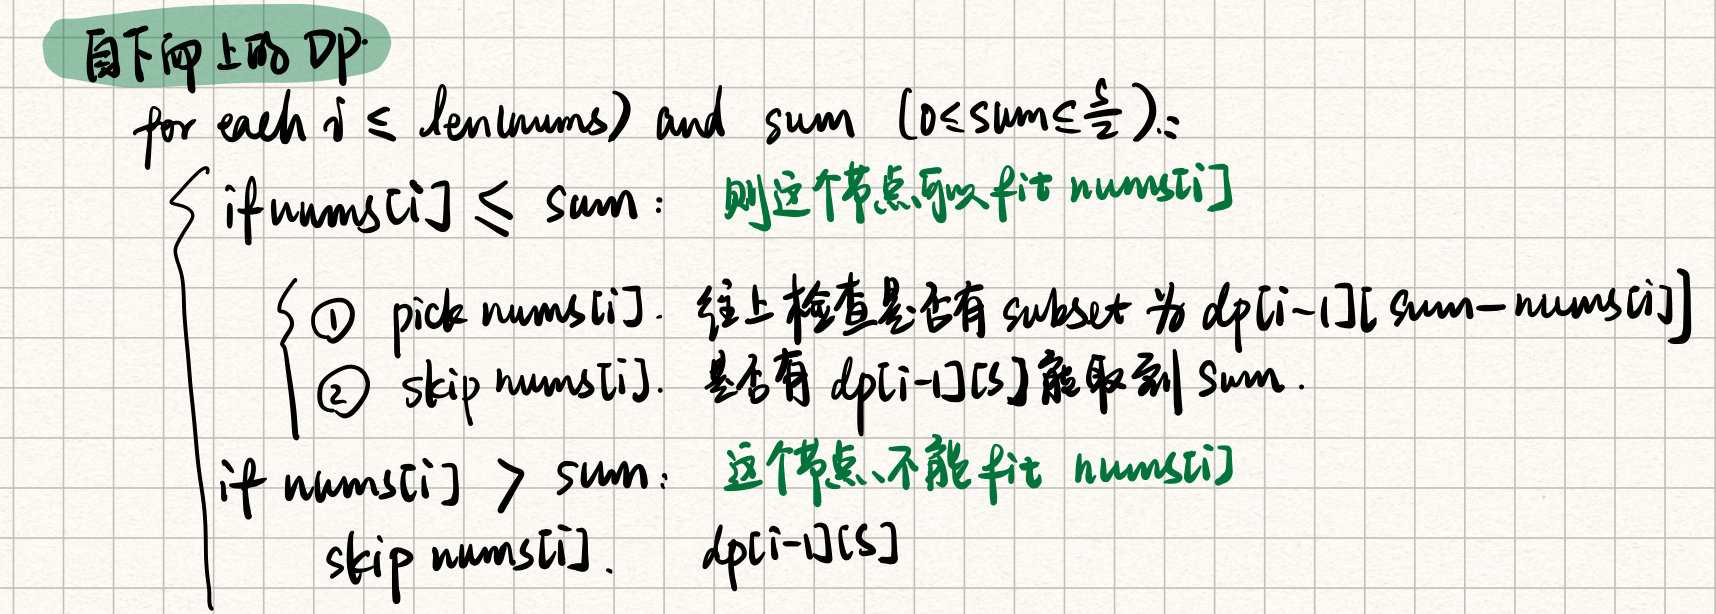 自下而上的 DP.
for each i ≤ len(nums) and sum (0≤sum≤s/2):
if nums[i] ≤ sum: 则这个节点可以fit nums[i]
① pick nums[i]. 往上检查是否有 subset 为 dp[i-1][sum-nums[i]]
② skip nums[i]. 是否有 dp[i-1][S] 能取到 sum.
if nums[i] > sum: 这个节点不能fit nums[i]
skip nums[i]. dp[i-1][S]